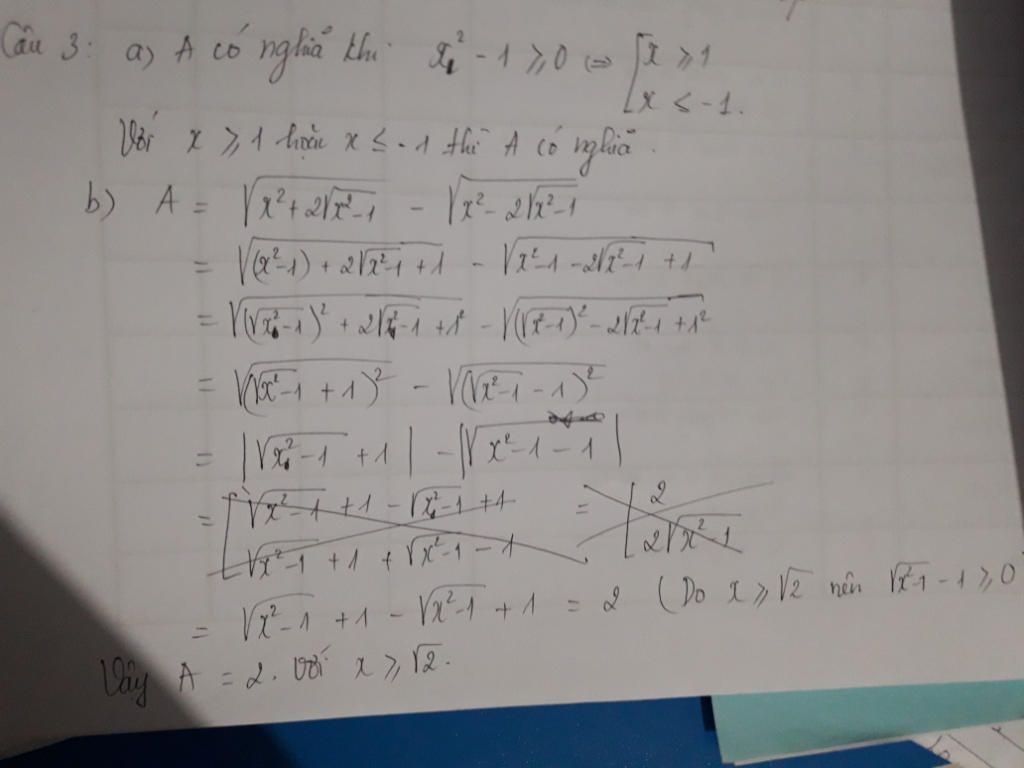 Câu 3: a) A có nghĩa khi x² - 1 ≥ 0 ⇔ [x ≥ 1
x ≤ -1.
Với x ≥ 1 hoặc x ≤ -1 thì A có nghĩa.
b) A = √(x² + 2√(x²-1)) - √(x² - 2√(x²-1))
= √((x²-1) + 2√(x²-1) + 1) - √(x²-1 - 2√(x²-1) + 1)
= √((√(x²-1))² + 2√(x²-1) + 1²) - √((√(x²-1))² - 2√(x²-1) + 1²)
= √((√(x²-1) + 1)²) - √((√(x²-1) - 1)²)
= |√(x²-1) + 1| - |√(x²-1 - 1)|
= [√(x²-1) + 1 - √(x²-1) + 1 = [2
√(x²-1) + 1 + √(x²-1) - 1 2√(x²-1)
= √(x²-1) + 1 - √(x²-1) + 1 = 2 (Do x ≥ √2 nên √(x²-1) - 1 ≥ 0
Vậy A = 2. với x ≥ √2.